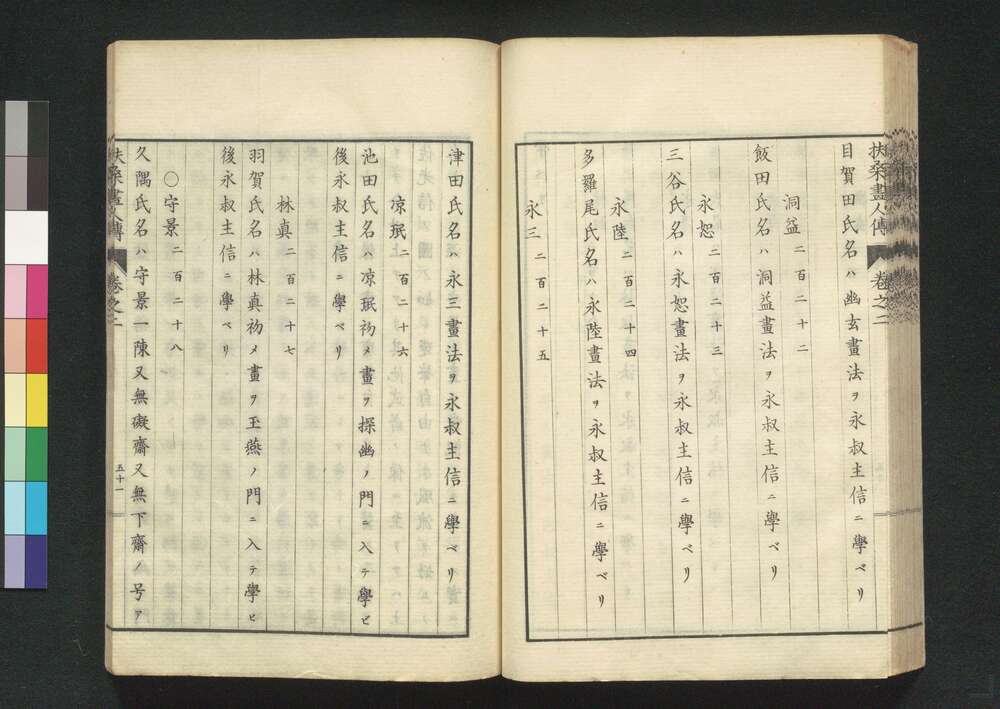 扶桑畫人傳 卷之二
目賀田氏名ハ幽玄畫法ヲ永叔主信ニ學ベリ
洞益 二百二十二
飯田氏名ハ洞益畫法ヲ永叔主信ニ學ベリ
永恕 二百二十三
三谷氏名ハ永恕畫法ヲ永叔主信ニ學ベリ
永陸 二百二十四
多羅尾氏名ハ永陸畫法ヲ永叔主信ニ學ベリ
永三 二百二十五
津田氏名ハ永三畫法ヲ永叔主信ニ學ベリ
凉珉 二百二十六
池田氏名ハ凉珉初メ畫ヲ探幽ノ門ニ入テ學ビ
後永叔主信ニ學ベリ
林真 二百二十七
羽賀氏名ハ林真初メ畫ヲ玉燕ノ門ニ入テ學ビ
後永叔主信ニ學ベリ
〇守景 二百二十八
久隅氏名ハ守景一陳又無礙齋又無下齋ノ号ア
扶桑畫人傳 卷之二 五十一